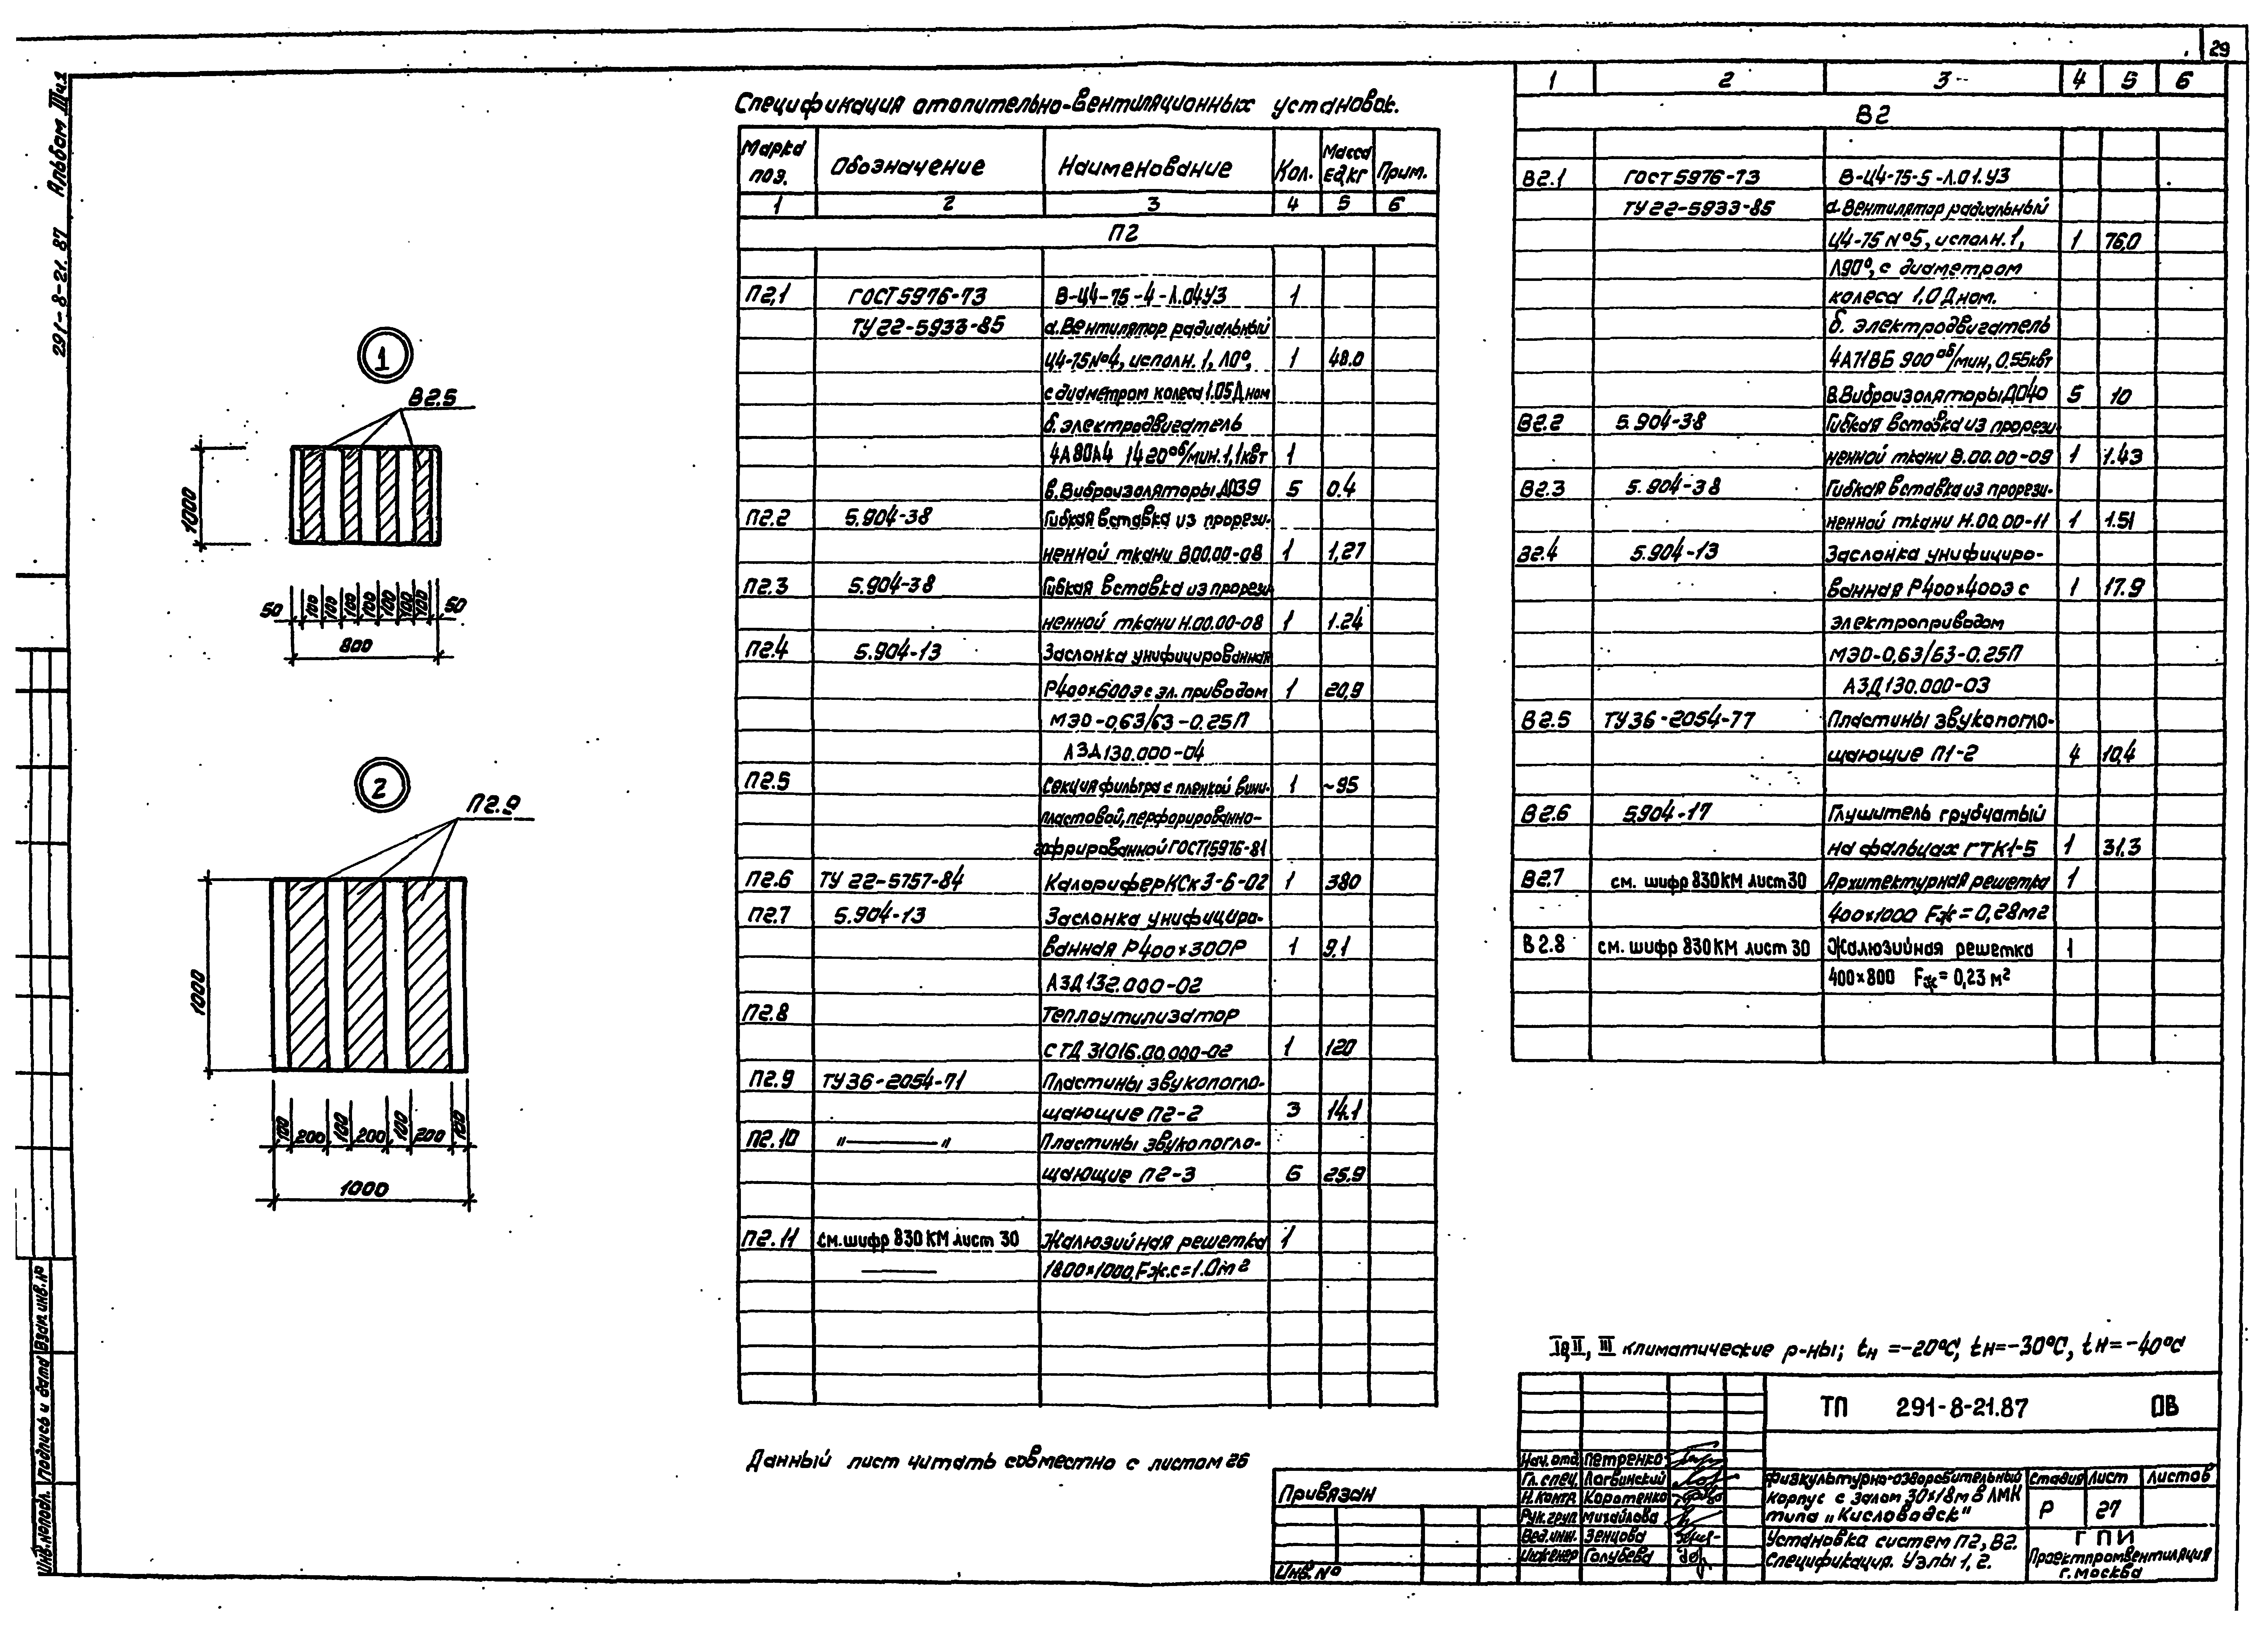 29
291-8-21.87 Альбом III ч.1
1
В2.5
1000
50 100 100 100 100 100 100 100 50
800
2
П2.9
1000
100 200 100 200 100 200 100
1000
Спецификация отопительно-вентиляционных установок.
Марка поз. Обозначение Наименование Кол. Масса ед.кг Прим.
1 2 3 4 5 6
П2
П2.1 ГОСТ 5976-73 В-Ц4-75-4-Л.04У3 1
ТУ 22-5933-85 а.Вентилятор радиальный
Ц4-75№4, исполн. 1, Л0°, 1 48.0
с диаметром колеса 1.05Дном
б. электродвигатель
4А80А4 1420 об/мин. 1,1квт 1
в.Виброизоляторы ДО39 5 0.4
П2.2 5.904-38 Гибкая вставка из прорези-
ненной ткани В00.00-08 1 1,27
П2.3 5.904-38 Гибкая вставка из прорези-
ненной ткани Н.00.00-08 1 1.24
П2.4 5.904-13 Заслонка унифицированная
Р400×600Э с эл. приводом 1 20,9
МЭО-0,63/63-0.25П
АЗД130.000-04
П2.5 Секция фильтра с пленкой вини-
пластовой, перфорированно-
гофрированной ГОСТ15976-81 1 ~95
П2.6 ТУ 22-5757-84 Калорифер КСк3-6-02 1 380
П2.7 5.904-13 Заслонка унифициро-
ванная Р400×300Р 1 9.1
АЗД132.000-02
П2.8 Теплоутилизатор
СТД 31016.00.000-02 1 120
П2.9 ТУ36-2054-71 Пластины звукопогло-
щающие П2-2 3 14.1
П2.10 "————" Пластины звукопогло-
щающие П2-3 6 25.9
П2.11 См.шифр 830 КМ лист 30 Жалюзийная решетка 1
1800×1000, Fж.с=1.0м2
Данный лист читать совместно с листом 26
1 2 3 4 5 6
В2
В2.1 ГОСТ 5976-73 В-Ц4-75-5-Л.01.У3
ТУ 22-5933-85 а.Вентилятор радиальный
Ц4-75 №5, исполн. 1, 1 76,0
Л90°, с диаметром
колеса 1,0 Дном.
б. электродвигатель
4А71В6 900 об/мин, 0.55квт
в.Виброизоляторы ДО40 5 10
В2.2 5.904-38 Гибкая вставка из прорези-
ненной ткани В.00.00-09 1 1.43
В2.3 5.904-38 Гибкая вставка из прорези-
ненной ткани Н.00.00-11 1 1.51
В2.4 5.904-13 Заслонка унифициро-
ванная Р400×400Э с 1 17.9
электроприводом
МЭО-0,63/63-0.25П
АЗД130.000-03
В2.5 ТУ36-2054-77 Пластины звукопогло-
щающие П1-2 4 10,4
В2.6 5.904-17 Глушитель трубчатый
на фальцах ГТК1-5 1 31.3
В2.7 см. шифр 830КМ лист 30 Архитектурная решетка 1
400×1000 Fж=0,28м2
В2.8 см. шифр 830КМ лист 30 Жалюзийная решетка 1
400×800 Fж=0,23 м²
II, III климатические р-ны; tн=-20°С, tн=-30°С, tн=-40°С
ТП 291-8-21.87 ОВ
Нач.отд. Петренко
Гл.спец. Логвинский
Н.контр. Коротенко
Рук.груп. Михайлова
Вед.инж. Зенцова
Инженер Голубева
Физкультурно-оздоровительный
корпус с залом 30×18м в ЛМК
типа „Кисловодск"
Стадия Лист Листов
Р 27
Установка систем П2, В2.
Спецификация. Узлы 1, 2.
ГПИ
Проектпромвентиляция
г.Москва
Привязан
Инв.№
Инв.№подл. Подпись и дата Взам.инв.№